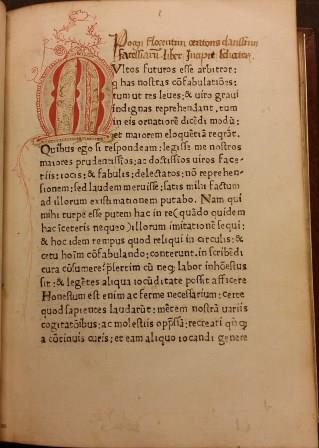 Pogii florentini oratoris clarissimi
facetiarū liber Incipit feliciter.
MUltos futuros esse arbitror:
q has nostras cōfabulatiōes:
tum ut res leues: & uiro graui
indignas reprehendant. tum
in eis ornatiorē dicēdi modū:
et maiorem eloquētiā reqrāt.
Quibus ego si respondeam: legisse me nostros
maiores prudentissiōs: ac doctissiōs uiros face-
tiis: iocis: & fabulis: delectatos: nō reprehen-
sionem: sed laudem meruisse: satis mihi factum
ad illorum existimationem putabo. Nam qui
mihi turpe esse putem hac in re( quādo quidem
hac īceteris nequeo )illorum imitationē sequi:
& hoc idem tempus quod reliqui in circulis: &
cetu hoīm cōfabulando: conterunt. in scribēdi
cura cōsumere? p̄sertim cū neq; labor inhōestus
sit: & legētes aliqua iocūditate possit afficere
Honestum est enim ac ferme necessarium: certe
quod sapientes laudarūt: mētem nostrā uariis
cogitatōibus: ac molestiis opp̄ssā: recreari qn̄q;
a cōtinuis curis: et eam aliquo iocandi genere